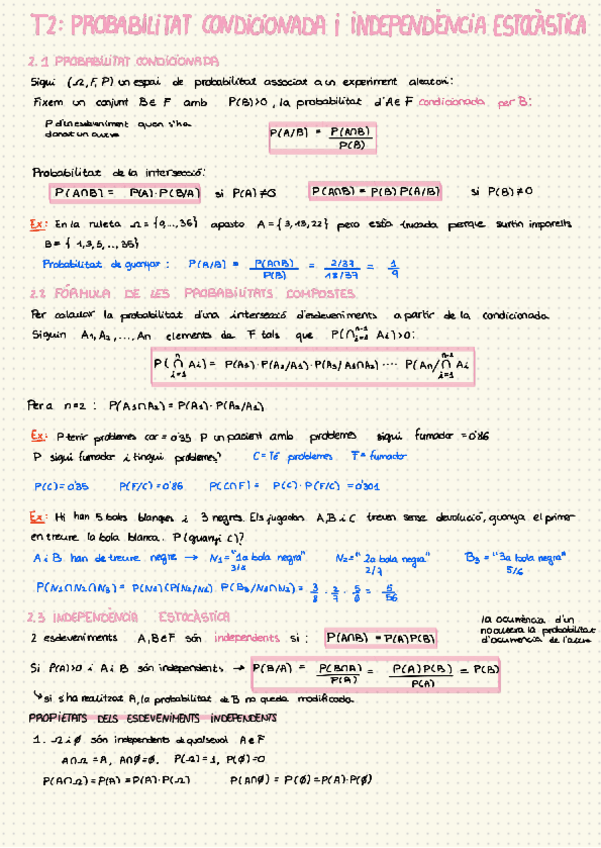 T2: PROBABILITAT CONDICIONADA i INDEPENDÈNCIA ESTOCÀSTICA
2.1 PROBABILITAT CONDICIONADA
Sigui (Ω, F, P) un espai de probabilitat associat a un experiment aleatori:
Fixem un conjunt B∈F amb P(B)>0, la probabilitat d'A∈F condicionada per B:
P d'un esdeveniment quan s'ha
donat un altre
P(A/B) = P(A∩B) / P(B)
Probabilitat de la intersecció:
P(A∩B) = P(A)·P(B/A) si P(A)≠0 P(A∩B) = P(B) P(A/B) si P(B)≠0
Ex: En la ruleta Ω = {0,...,36} aposto A = {3,13,22} però està trucada perque surtin imparells
B = { 1,3,5,..,35}
Probabilitat de guanyar: P(A/B) = P(A∩B) / P(B) = 2/37 / 18/37 = 1/9
2.2 FÓRMULA DE LES PROBABILITATS COMPOSTES
Per calcular la probabilitat d'una intersecció d'esdeveniments a partir de la condicionada.
Siguin A1, A2,..., An elements de F tals que P(∩ n-1 i=1 Ai)>0:
P( n ∩ i=1 Ai) = P(A1)·P(A2/A1)·P(A3/A1∩A2)· ··· P(An/ n-1 ∩ i=1 Ai
Per a n=2 : P(A1∩A2) = P(A1)·P(A2/A1)
Ex: P tenir problemes cor = 0'35 P un pacient amb problemes sigui fumador = 0'86
P sigui fumador i tingui problemes? C = Té problemes F = fumador
P(C)=0'35 P(F/C) = 0'86 P(C∩F) = P(C)·P(F/C) = 0'301
Ex: Hi han 5 boles blanques i 3 negres. Els jugadors A,B i C treuen sense devolució, guanya el primer
en treure la bola blanca. P(guanyi C)?
A i B han de treure negre → N1 = "1a bola negra" N2 = "2a bola negra" B3 = "3a bola negra"
3/8 2/7 5/6
P(N1∩N2∩N3) = P(N1)(P(N2/N1) P(B3/N1∩N2) = 3/8 · 2/7 · 5/6 = 5/56
2.3 INDEPENDÈNCIA ESTOCÀSTICA
2 esdeveniments A,B∈F són independents si : P(A∩B) = P(A)P(B)
la ocurrència d'un
no altera la probabilitat
d'ocurrència de l'altre
Si P(A)>0 i A i B són independents → P(B/A) = P(B∩A) / P(A) = P(A)P(B) / P(A) = P(B)
↳ si s'ha realitzat A, la probabilitat de B no queda modificada.
PROPIETATS DELS ESDEVENIMENTS INDEPENDENTS
1. Ω i Ø són independents de qualsevol A∈F
A∩Ω = A, A∩Ø=Ø. P(Ω) = 1, P(Ø)=0
P(A∩Ω) = P(A) = P(A)·P(Ω) P(A∩Ø) = P(Ø) = P(A)·P(Ø)